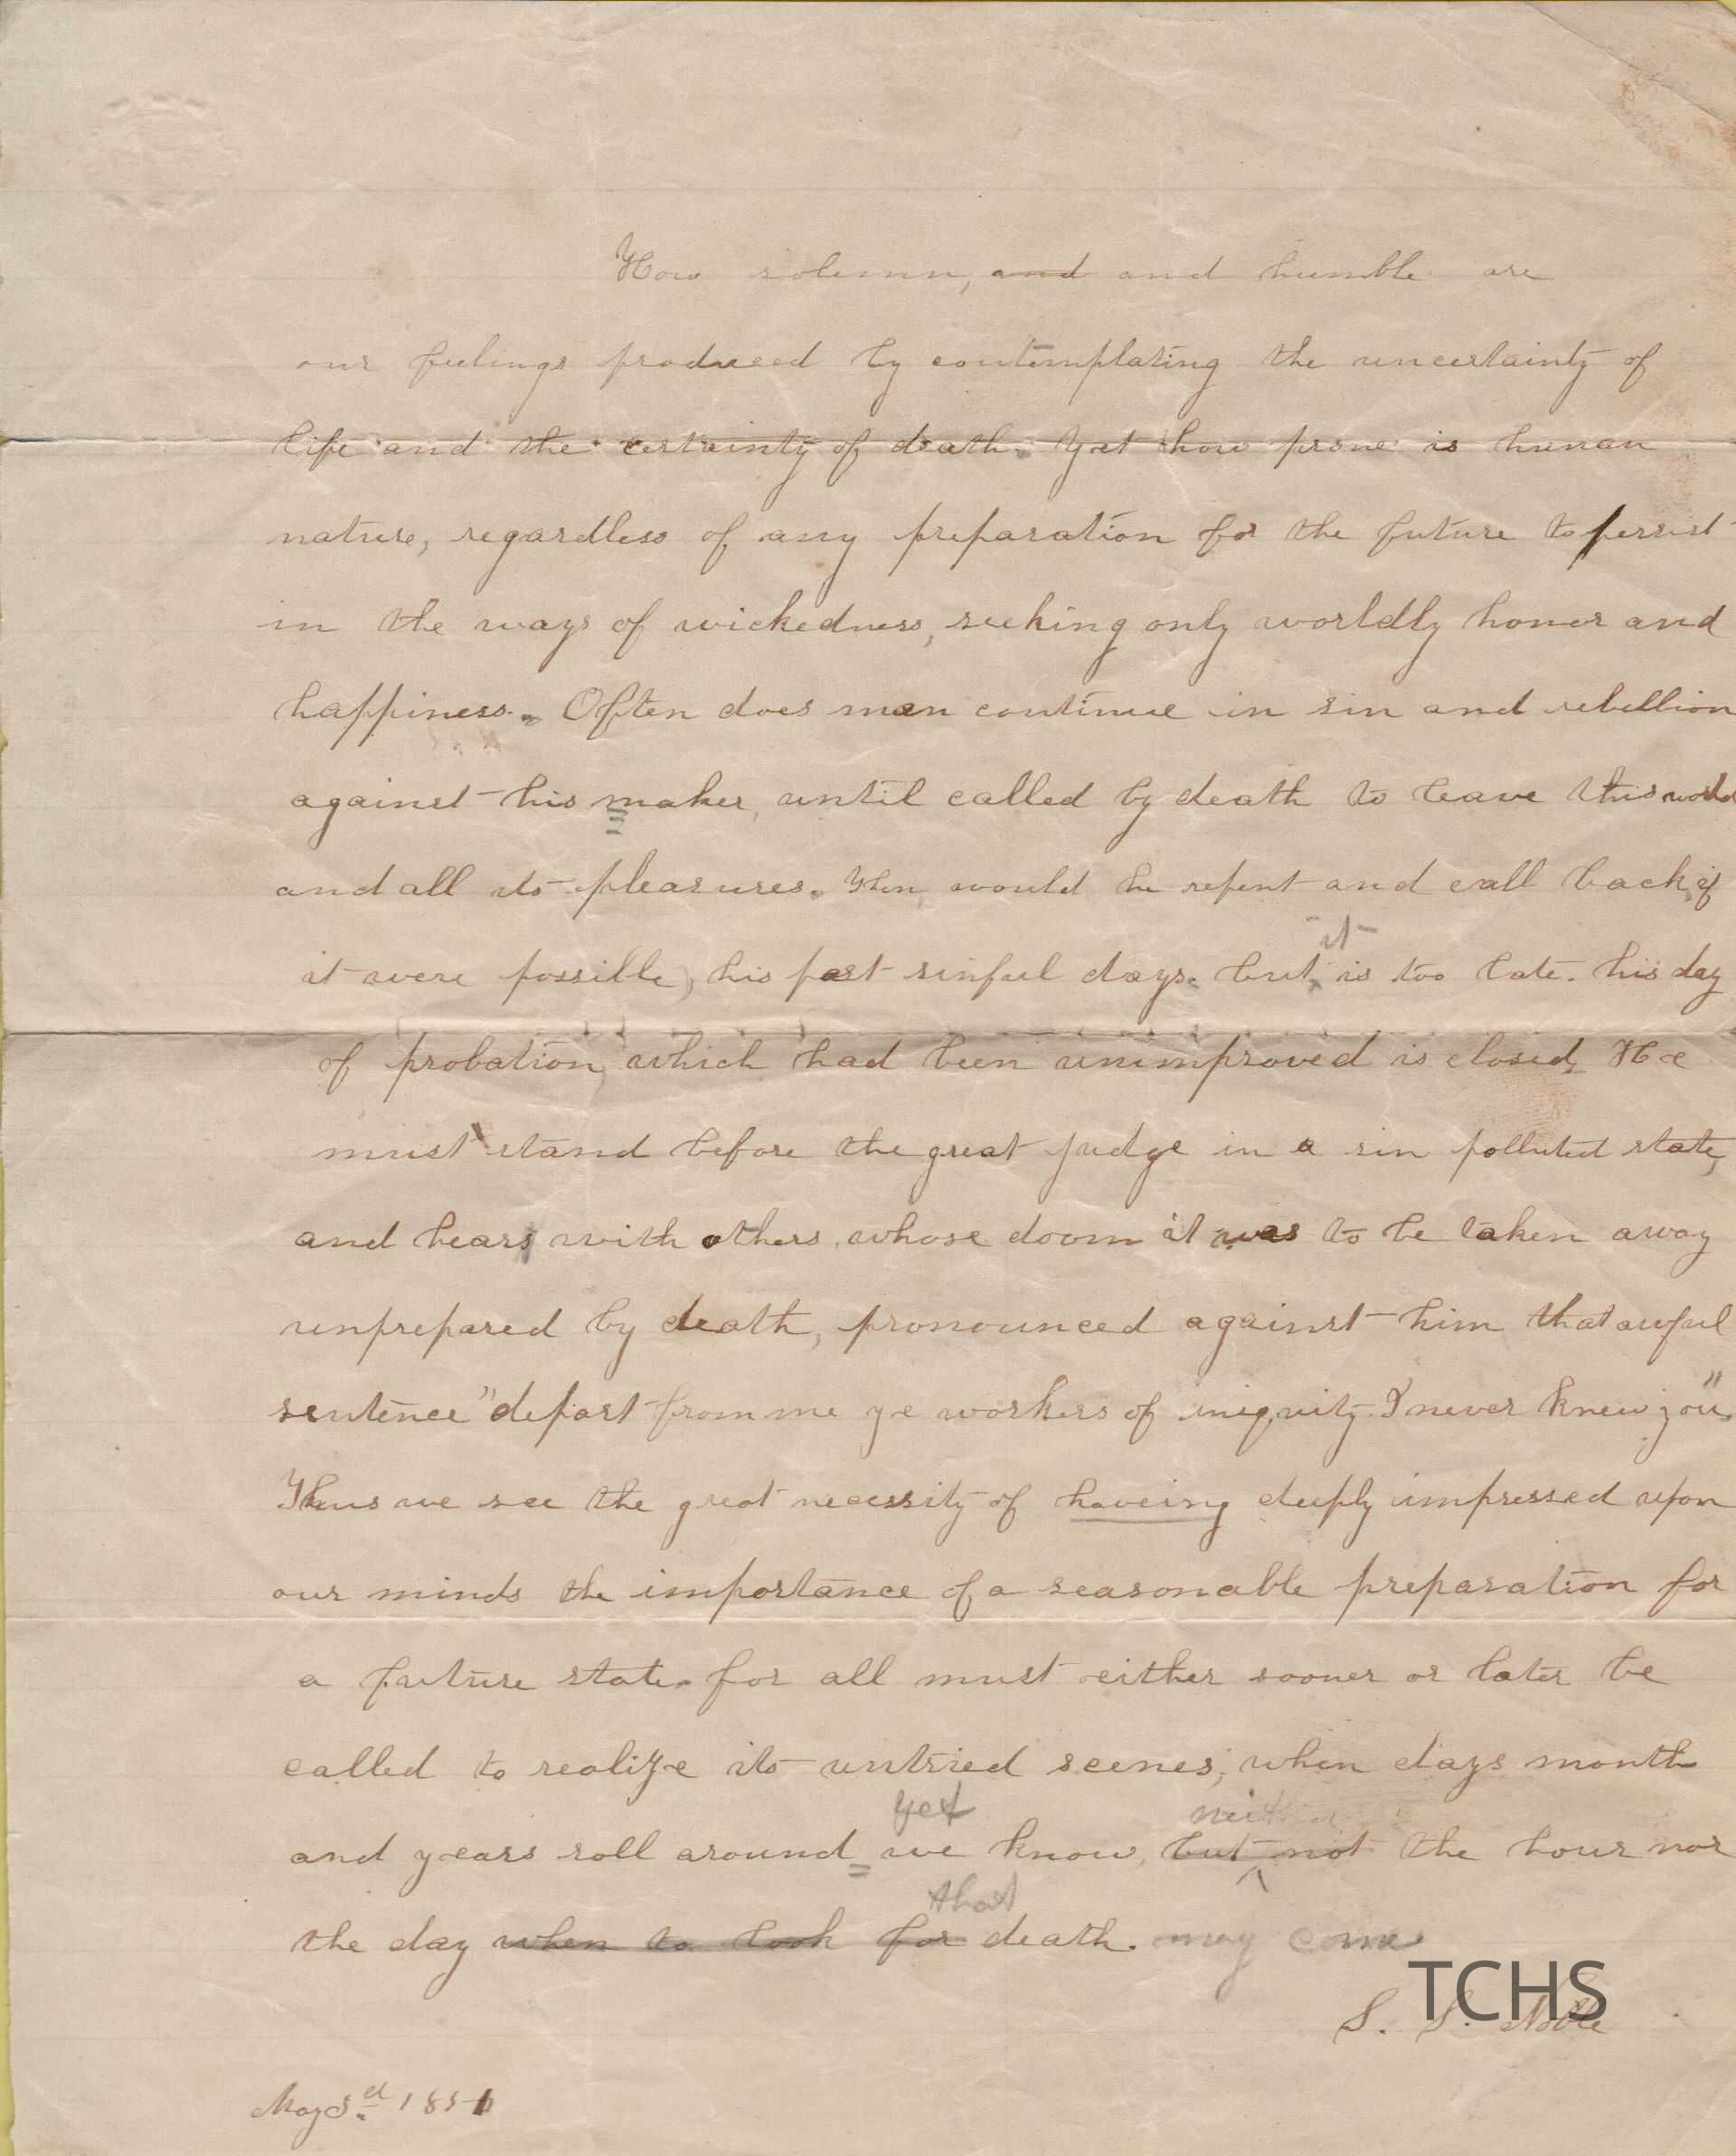 How solemn, and and humble are
our feelings produced by contemplating the uncertainty of
life and the certainty of death. Yet how prone is human
nature, regardless of any preparation for the future to persist
in the ways of wickedness, seeking only worldly honor and
happiness. Often does man continue in sin and rebellion
against his maker, until called by death to leave this world
and all its pleasures. Then would he repent and call back, if
it
it were possible, his past sinful days. but is too late. his day
of probation, which had been unimproved is closed, He
must stand before the great judge in a sin polluted state,
and hears with others, whose doom it was to be taken away
unprepared by death, pronounced against him that awful
sentence "depart from me ye workers of iniquity. I never knew you".
Thus we see the great necessity of haveing deeply impressed upon
our minds the importance of a seasonable preparation for
a future state. for all must either sooner or later be
called to realize its untried scenes, when days month
yet neither
and years roll around we know, but not the hour nor
that
the day when to look for death. may come
TCHS
S. S. Noble
May 3d 1851